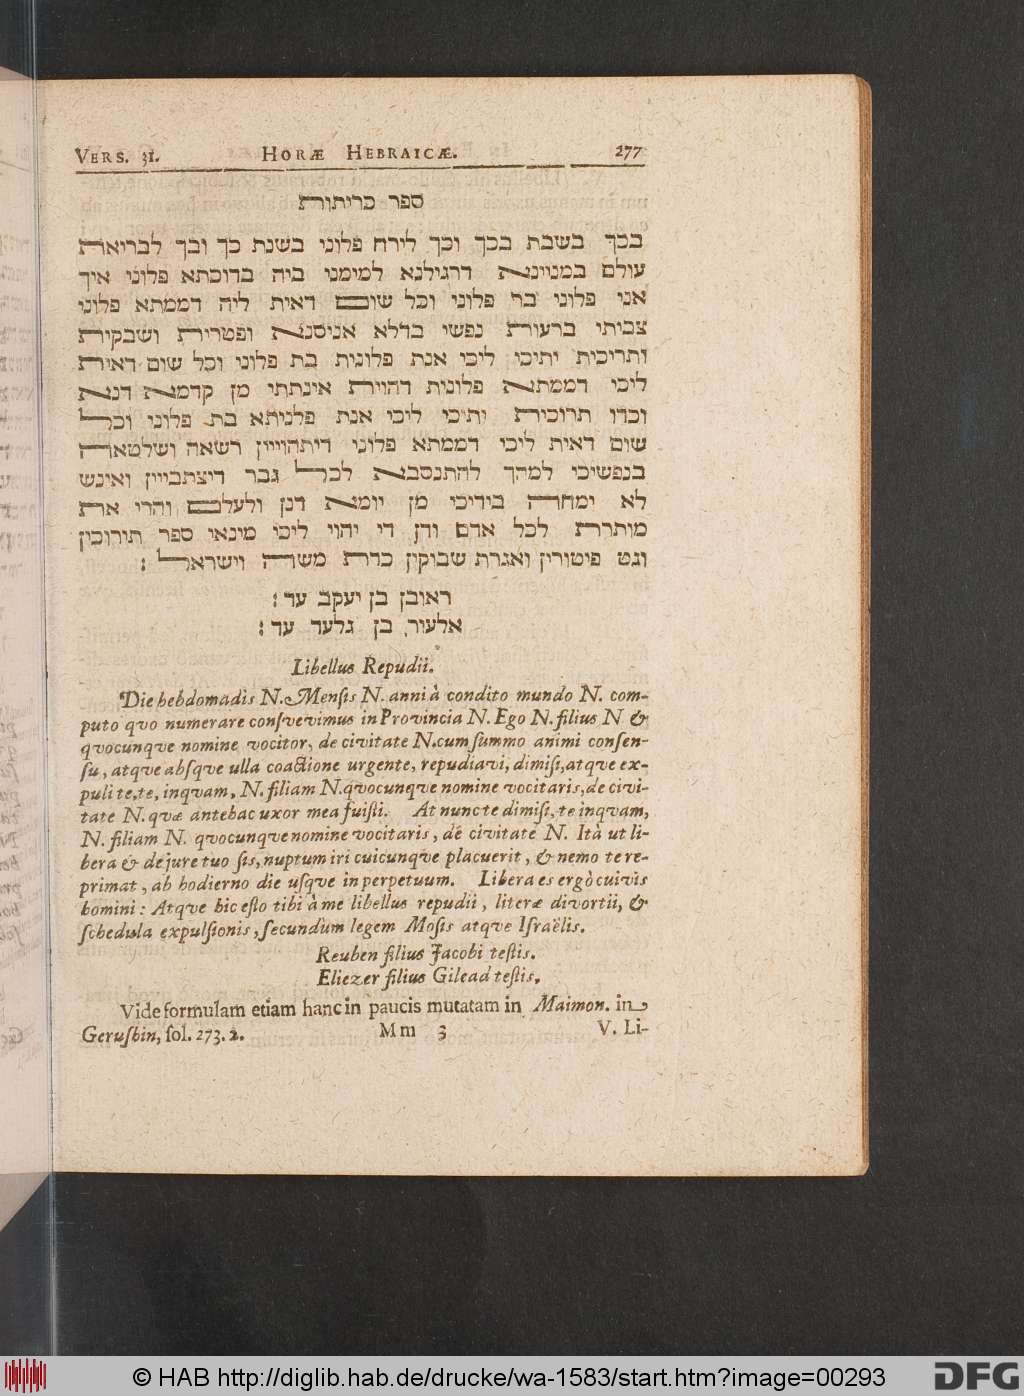 VERS. 31. HORÆ HEBRAICÆ. 277
ספר כריתות
בכך בשבת בכך וכך לירח פלוני בשנת כך וכך לבריאת
עולם במניינא דרגילנא למימני ביה בדוכתא פלוני איך
אני פלוני בר פלוני וכל שום דאית ליה דממתא פלוני
צביתי ברעות נפשי בדלא אניסנא ופטרית ושבקית
ותריכית יתיכי ליכי אנת פלונית בת פלוני וכל שום דאית
ליכי דממתא פלונית דהוית אינתתי מן קדמא דנא
וכדו תרוכית יתיכי ליכי אנת פלניתא בת פלוני וכל
שום דאית ליכי דממתא פלוני דיתהוייין רשאה ושלטאה
בנפשיכי למהך להתנסבא לכל גבר דיצתבייין ואינש
לא ימחה בידיכי מן יומא דנן ולעלם והרי את
מותרת לכל אדם ודן די יהוי ליכי מינאי ספר תירוכין
וגט פיטורין ואגרת שבוקין כדת משה וישראל :
ראובן בן יעקב עד :
אלעזר בן גלעד עד :
Libellus Repudii.
Die hebdomadis N. Mensis N. anni à condito mundo N. com-
puto qvo numerare consvevimus in Provincia N. Ego N. filius N &
qvocunqve nomine vocitor, de civitate N. cum summo animi consen-
su, atqve absqve ulla coactione urgente, repudiavi, dimisi, atqve ex-
puli te, te, inqvam, N. filiam N. qvocunqve nomine vocitaris, de civi-
tate N. qvæ antehac uxor mea fuisti. At nunc te dimisi, te inqvam,
N. filiam N. qvocunqve nomine vocitaris, de civitate N. Ità ut li-
bera & de jure tuo sis, nuptum iri cuicunqve placuerit, & nemo te re-
primat, ab hodierno die usqve in perpetuum. Libera es ergò cuivis
homini: Atqve hic esto tibi à me libellus repudii, literæ divortii, &
schedula expulsionis, secundum legem Mosis atqve Israëlis.
Reuben filius Jacobi testis.
Eliezer filius Gilead testis.
Vide formulam etiam hanc in paucis mutatam in Maimon. in
Gerushin, fol. 273. 2. Mm 3 V. Li-
© HAB http://diglib.hab.de/drucke/wa-1583/start.htm?image=00293
DFG